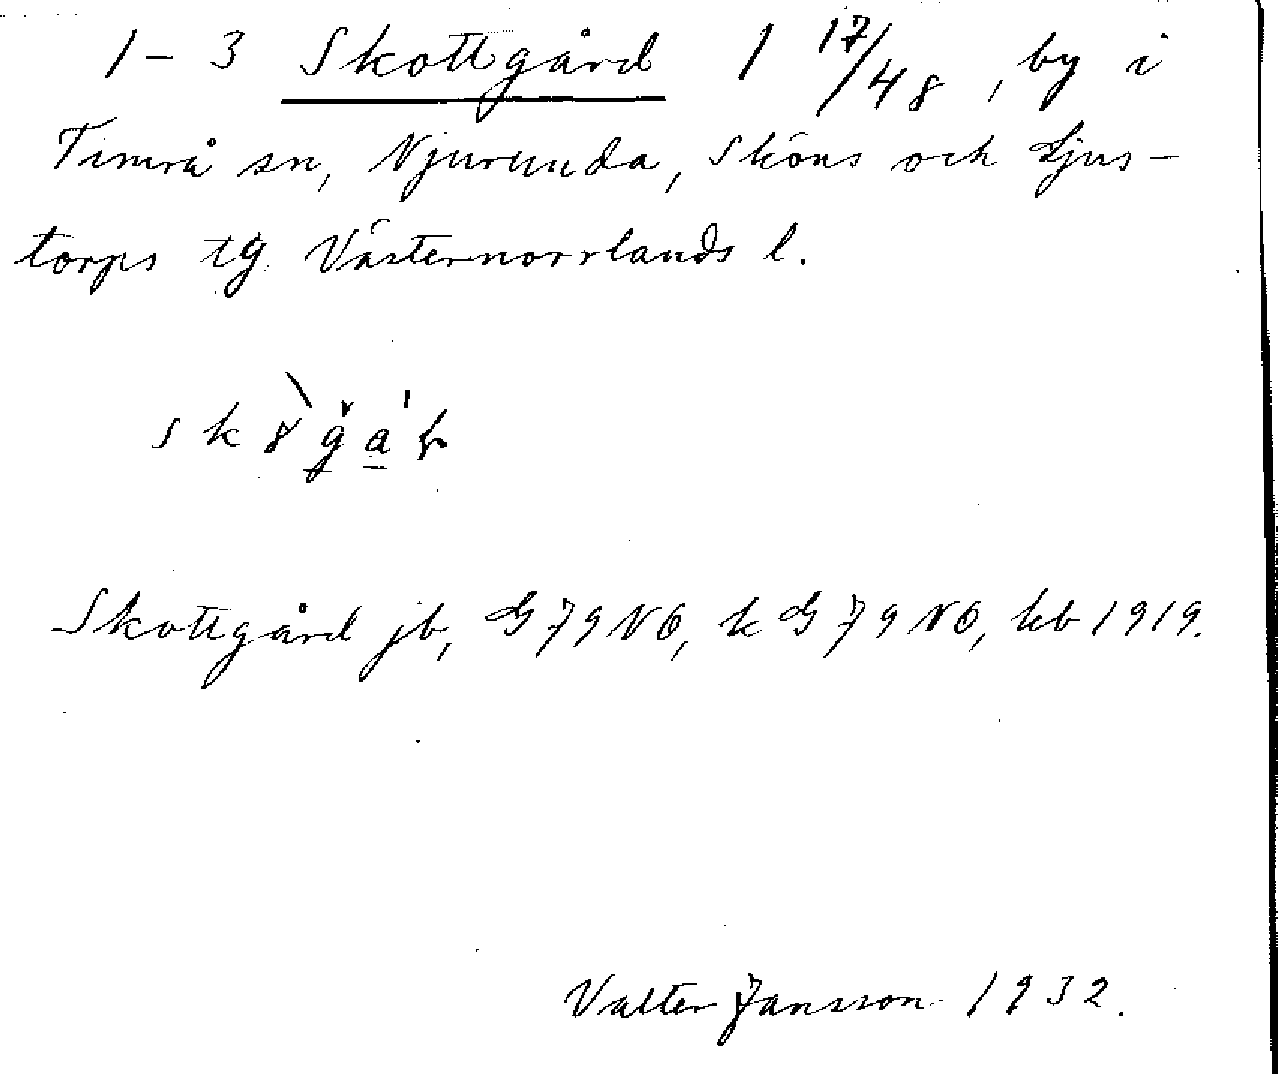 1-3 Skottgård 1 17/48, by i
Timrå sn, Njurunda, Sköns och Ljus-
torps tg. Västernorrlands l.
Skottgård jb, G 79 NO, k G 79 NO, kb 1919.
Valter Jansson 1932.